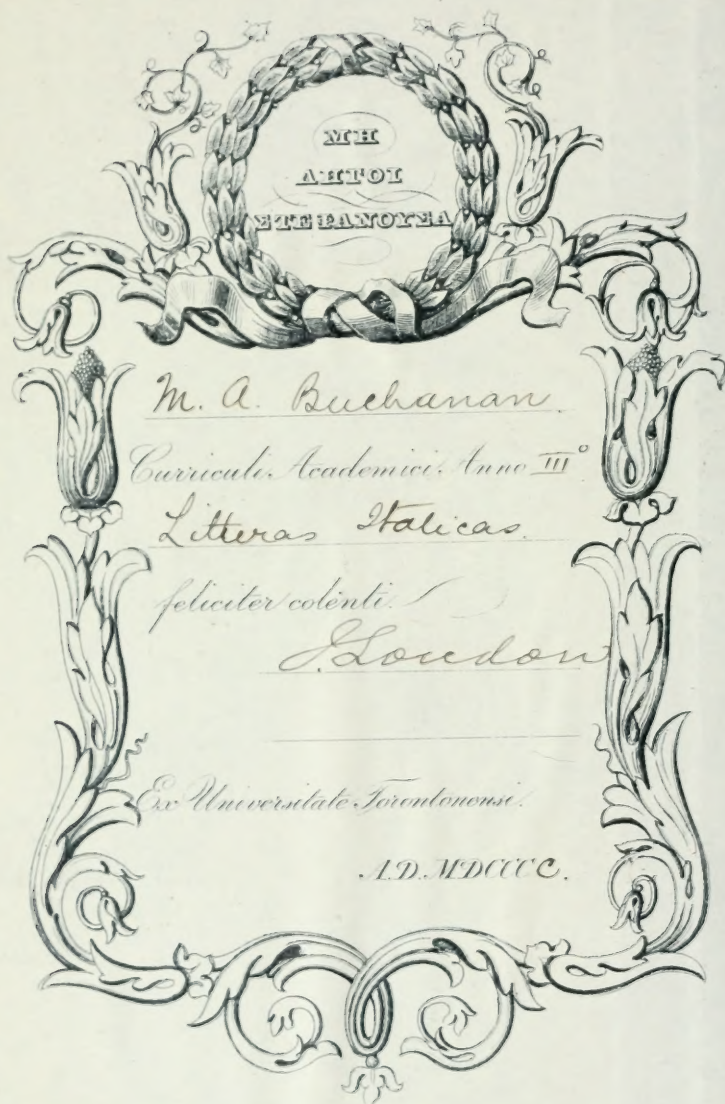 ΜΗ
ΛΗΓΟΙ
ΣΤΕΦΑΝΟΥΣΑ
M. A. Buchanan.
Curriculi Academici Anno IIIº
Litteras Italicas.
feliciter colenti.
J. Loudon
Ex Universitate Torontonensi.
A.D. MDCCCC.